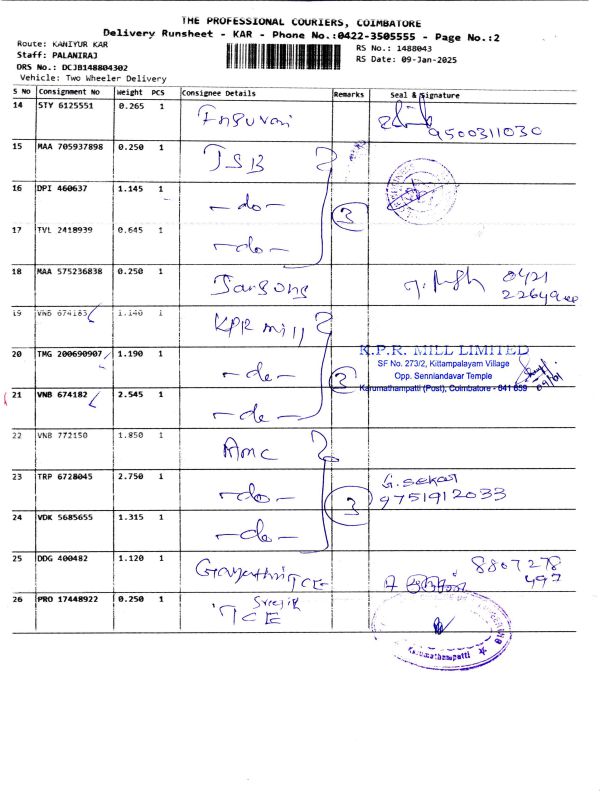 THE PROFESSIONAL COURIERS, COIMBATORE
Delivery Runsheet - KAR - Phone No.:0422-3505555 - Page No.:2
Route: KANIYUR KAR
RS No.: 1488043
Staff: PALANIRAJ
RS Date: 09-Jan-2025
DRS No.: DCJB148804302
Vehicle: Two Wheeler Delivery
S No Consignment No Weight PCS Consignee Details Remarks Seal & Signature
14 STY 6125551 0.265 1
9500311030
15 MAA 705937898 0.250 1 JSB
16 DPI 460637 1.145 1 -do- 3
17 TVL 2418939 0.645 1 -do-
18 MAA 575236838 0.250 1 Jansons 0421
19 VNB 674183 1.140 1 KPR mill
K.P.R. MILL LIMITED
SF No. 273/2, Kittampalayam Village
20 TMG 200690907 1.190 1 -do- 3
Opp. Senniandavar Temple
Karumathampatti (Post), Coimbatore - 641 659
21 VNB 674182 2.545 1 -do-
22 VNB 772150 1.850 1 Amc
23 TRP 6728045 2.750 1 -do- G. sekar
3 9751912033
24 VDK 5685655 1.315 1 -do-
25 DDG 400482 1.120 1 Gayathri TCE 8807278
497
26 PRO 17448922 0.250 1 TCE
Karumathampatti